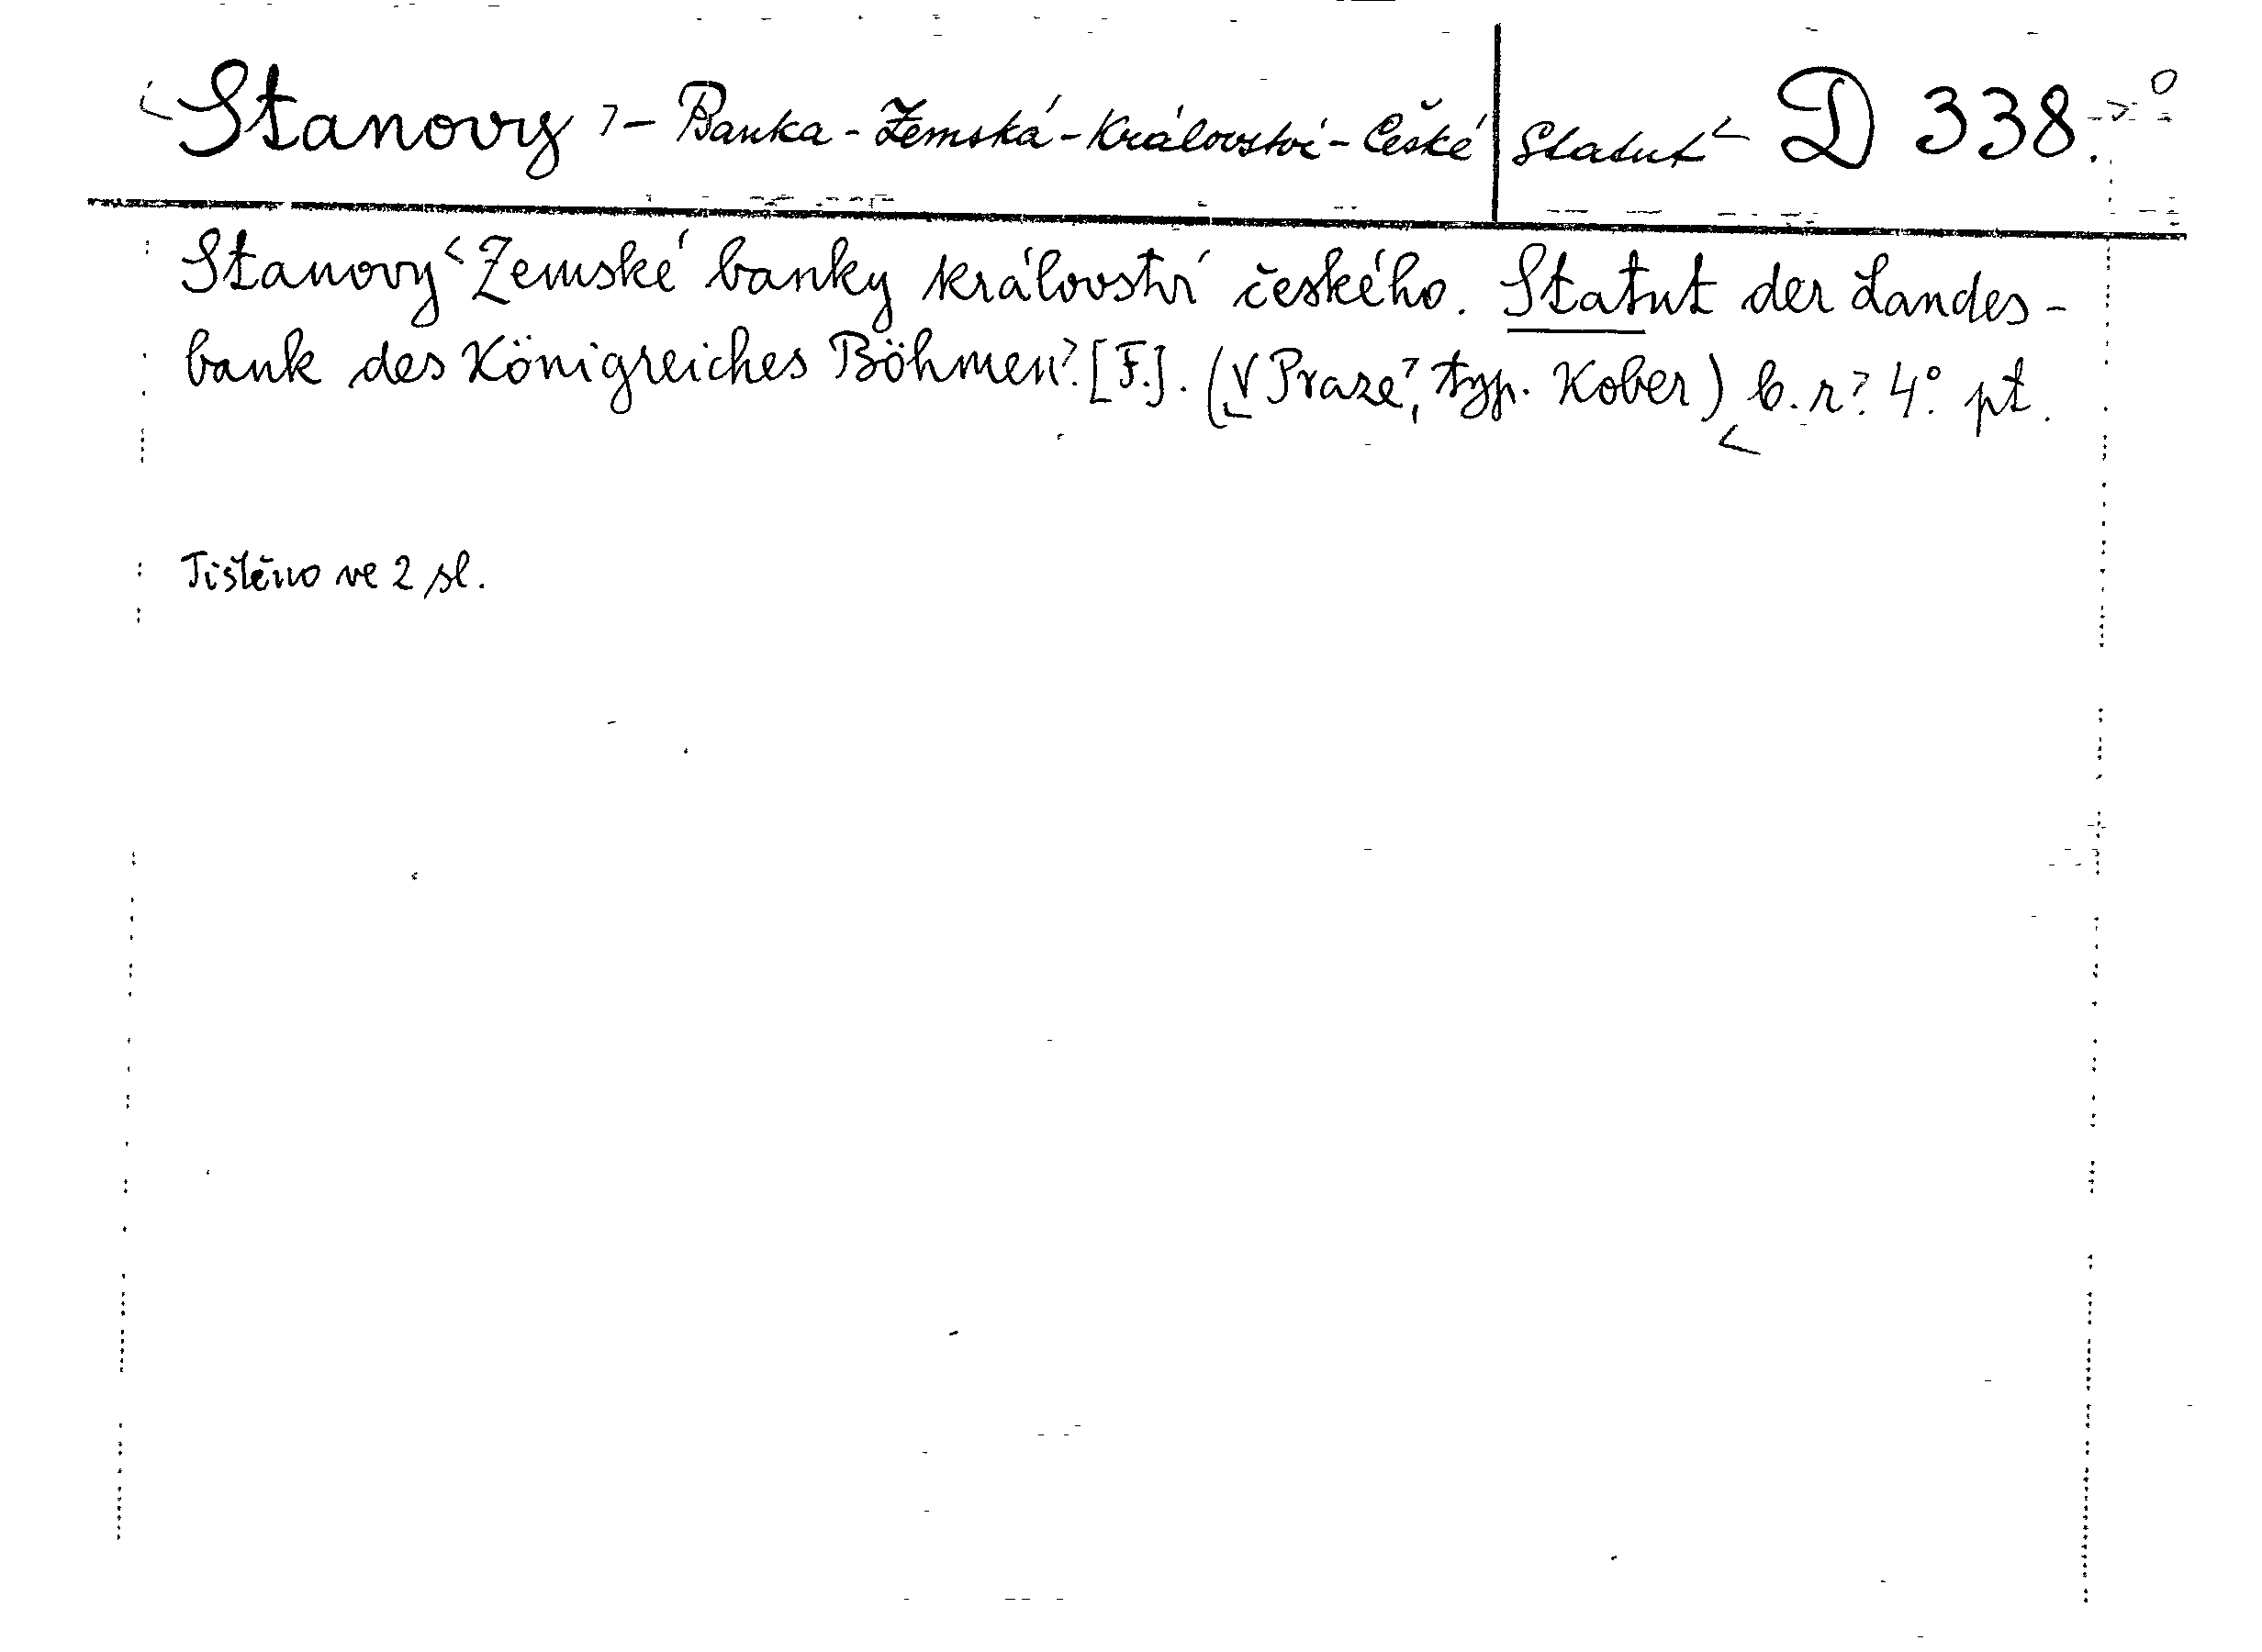 Stanovy - Banka - Zemská - Království - České | Statut D 338.
Stanovy Zemské banky království českého. Statut der Landes-
bank des Königreiches Böhmen. [F.]. (V Praze, typ. Kober) b. r. 4° pt.
Tištěno ve 2 sl.